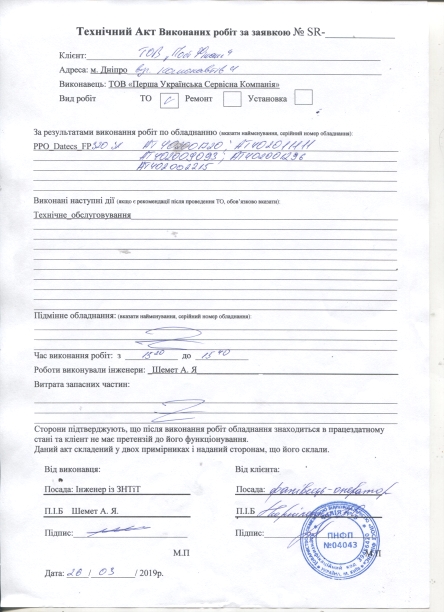 Технічний Акт Виконаних робіт за заявкою № SR-
Клієнт: ТОВ
Адреса: м. Дніпро вул
Виконавець: ТОВ «Перша Українська Сервісна Компанія»
Вид робіт ТО Ремонт Установка
За результатами виконання робіт по обладнанню (вказати найменування, серійний номер обладнання):
РРО_Datecs_FP
АТ402009093; АТ402001296
АТ402002215
Виконані наступні дії (якщо є рекомендації після проведення ТО, обов'язково вказати):
Технічне_обслуговування
Підмінне обладнання: (вказати найменування, серійний номер обладнання)
Час виконання робіт: з до 15 40
Роботи виконували інженери: _Шемет А. Я
Витрата запасних частин:
Сторони підтверджують, що після виконання робіт обладнання знаходиться в працездатному
стані та клієнт не має претензій до його функціонування.
Даний акт складений у двох примірниках і наданий сторонам, що його склали.
Від виконавця: Від клієнта:
Посада: Інженер із ЗНТіТ Посада: фахівець-оператор
П.І.Б Шемет А. Я. П.І.Б
Підпис: Підпис:
ПНФП
№04043
М.П М.П
Дата: 26 / 03 / 2019р.